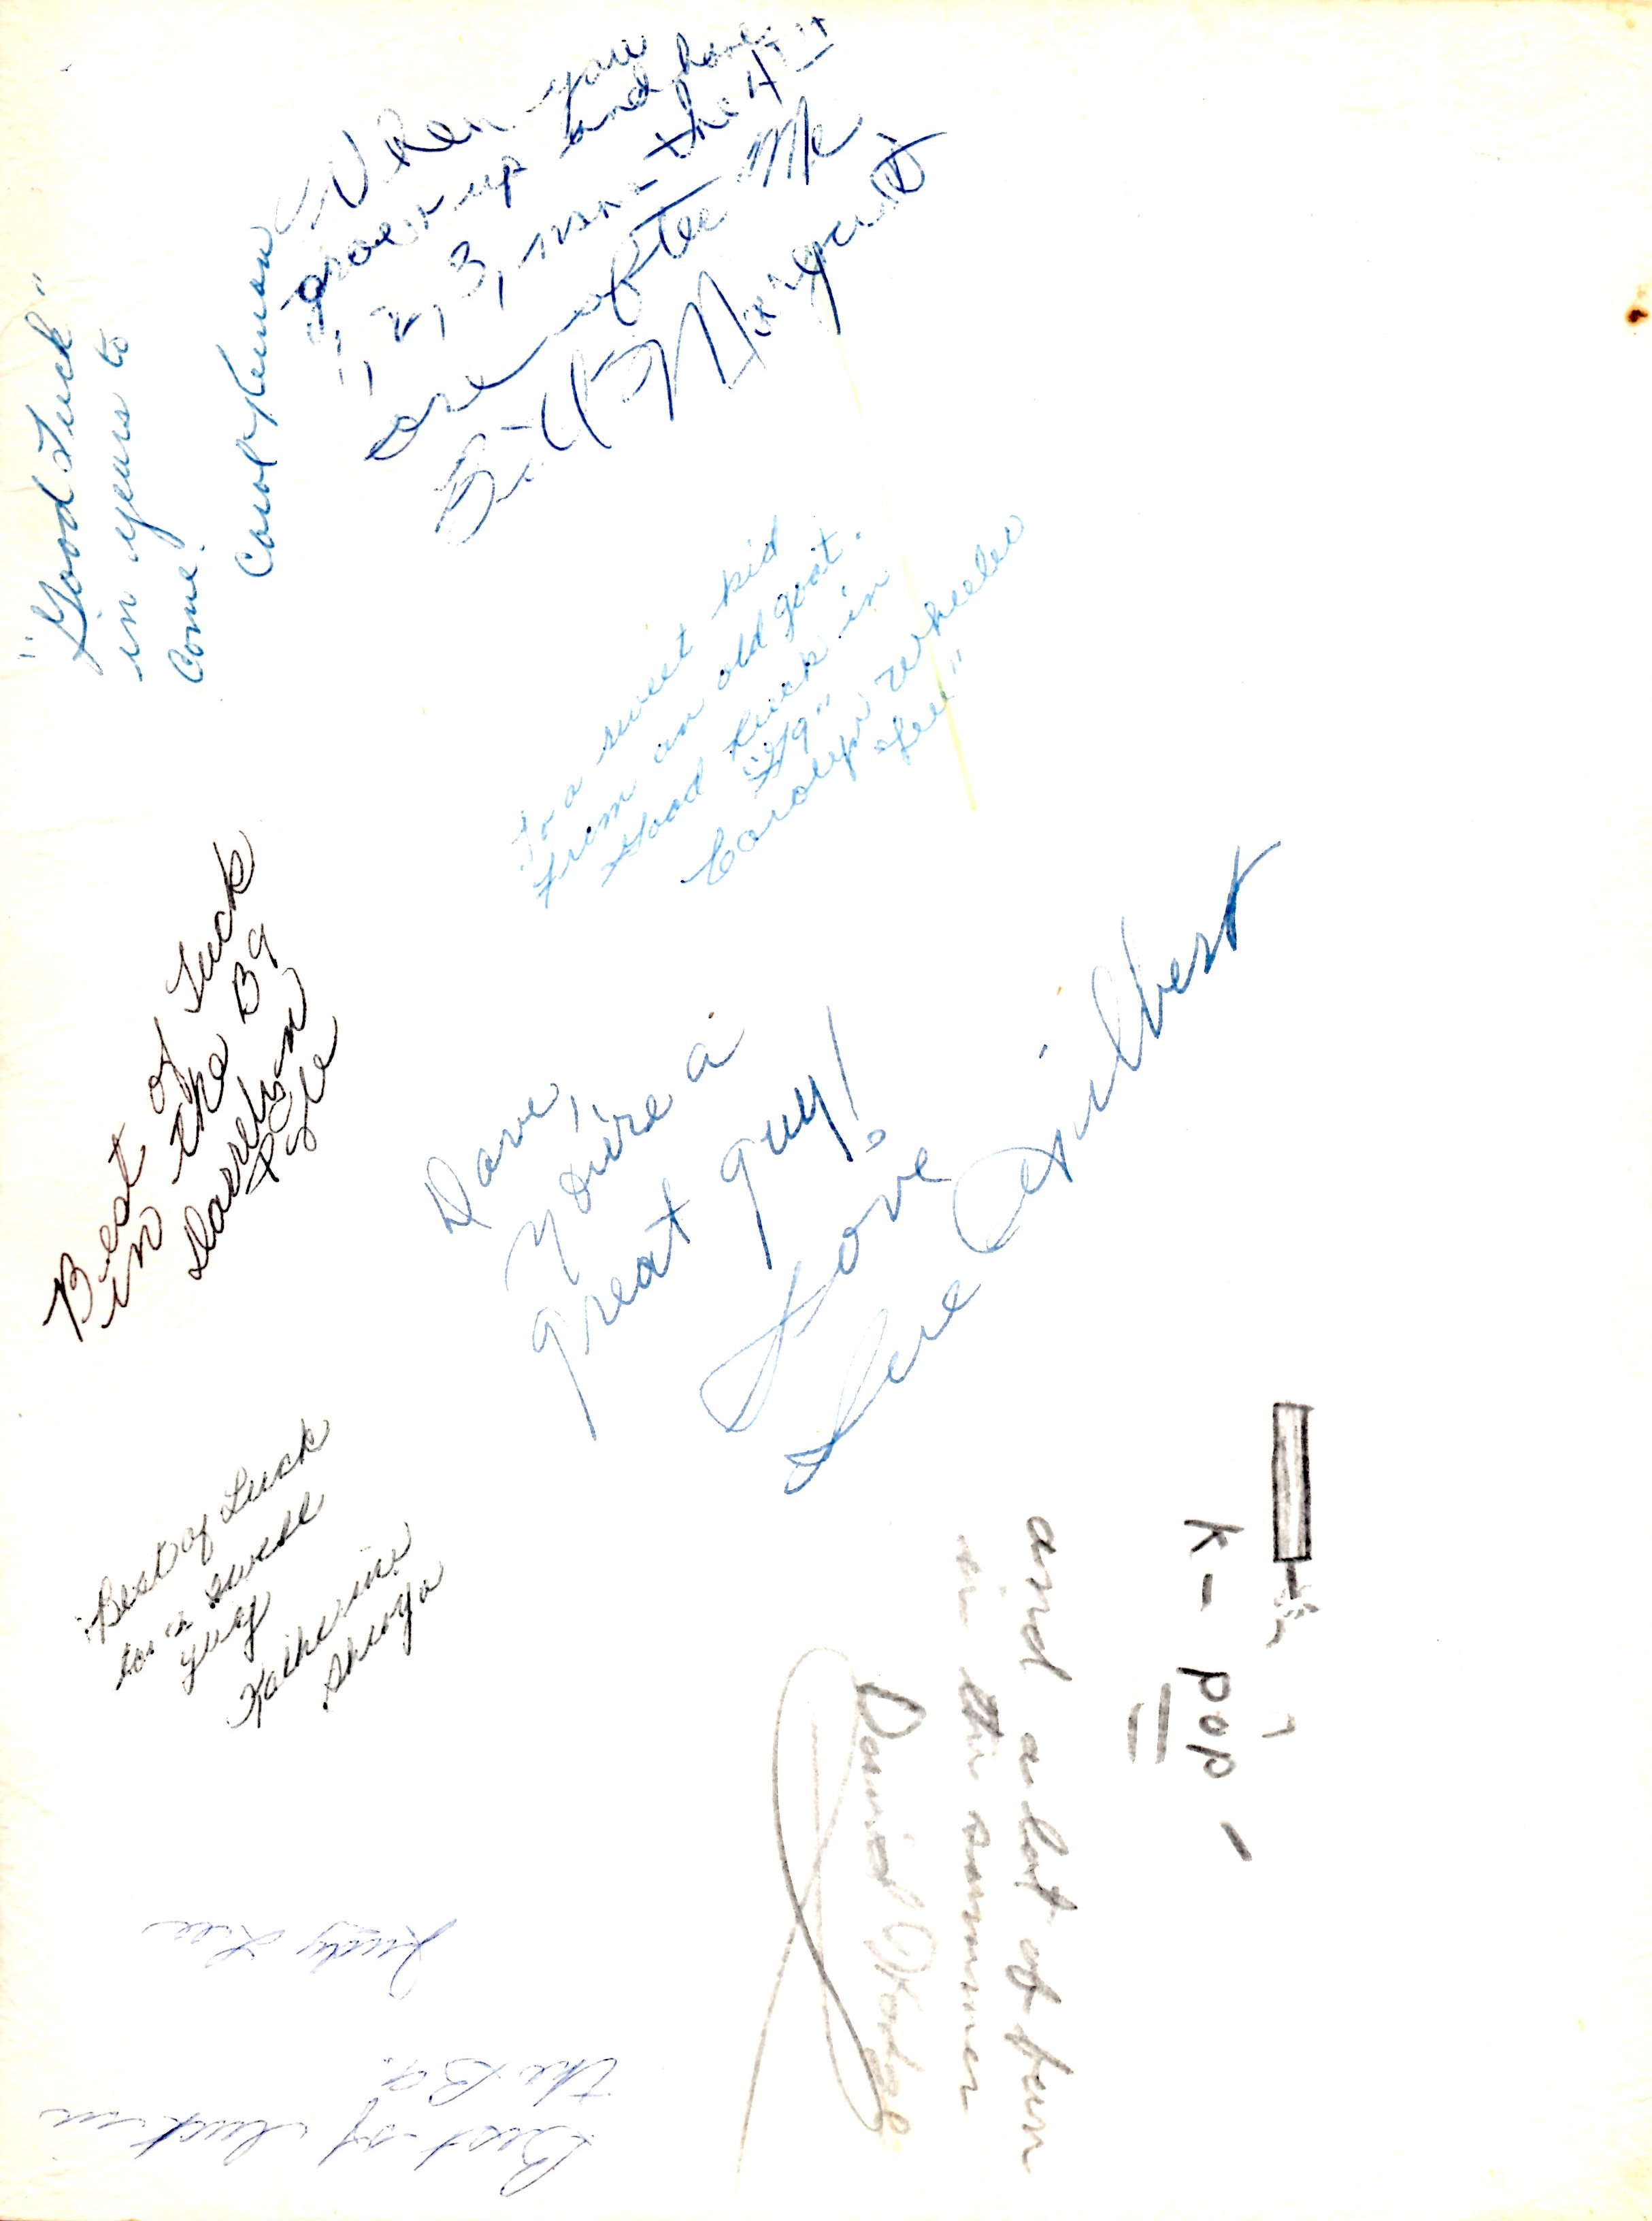 "Good Luck"
in years to
Come.
Carol
When you
grow up and have
1, 2, 3,
one after Me
Bill Margarit
To a sweet kid
from an old goat.
Good Luck in
"
Carolyn Wheeler
Best of Luck
in the B9
Darrelyn
Pyle
Dave,
You're a
great guy!
Love
Sue Gilbert
Best of Luck
to a swell
guy
Katherine
K- pop
and a lot of fun
in the summer
David
Best of luck in
the B9.
Judy Lee